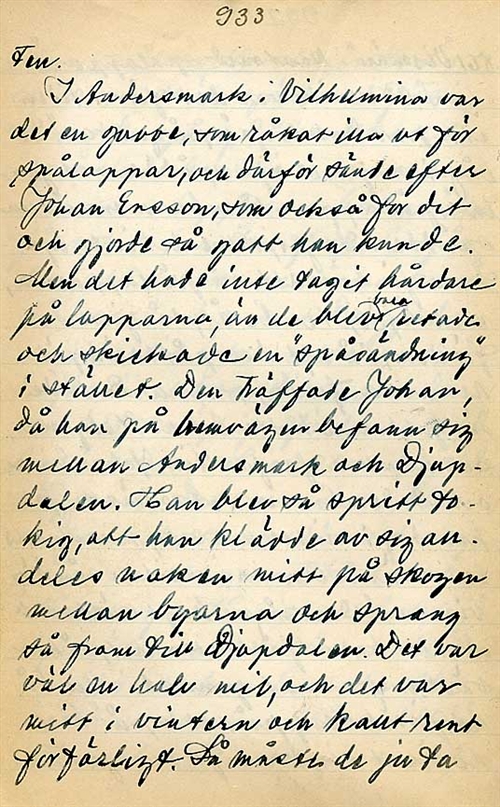 933
ten.
I Andersmark i Vilhelmina var
det en gubbe, som råkat illa ut för
spålappar, och därför sände efter
Johan Ersson, som också for dit
och gjorde så gott han kunde.
Men det hade inte tagit hårdare
på lapparna, än de blev bara retade
och skickade en "spåsändning"
i stället. Den träffade Johan,
då han på hemvägen befann sig
mellan Andersmark och Djup-
dalen. Han blev så spritt to-
kig, att han klädde av sig an-
deles naken mitt på skogen
mellan byarna och sprang
så fram till Djupdalen. Det var
väl en halv mil, och det var
mitt i vintern och kallt rent
förfärligt. Då måste de ju ta